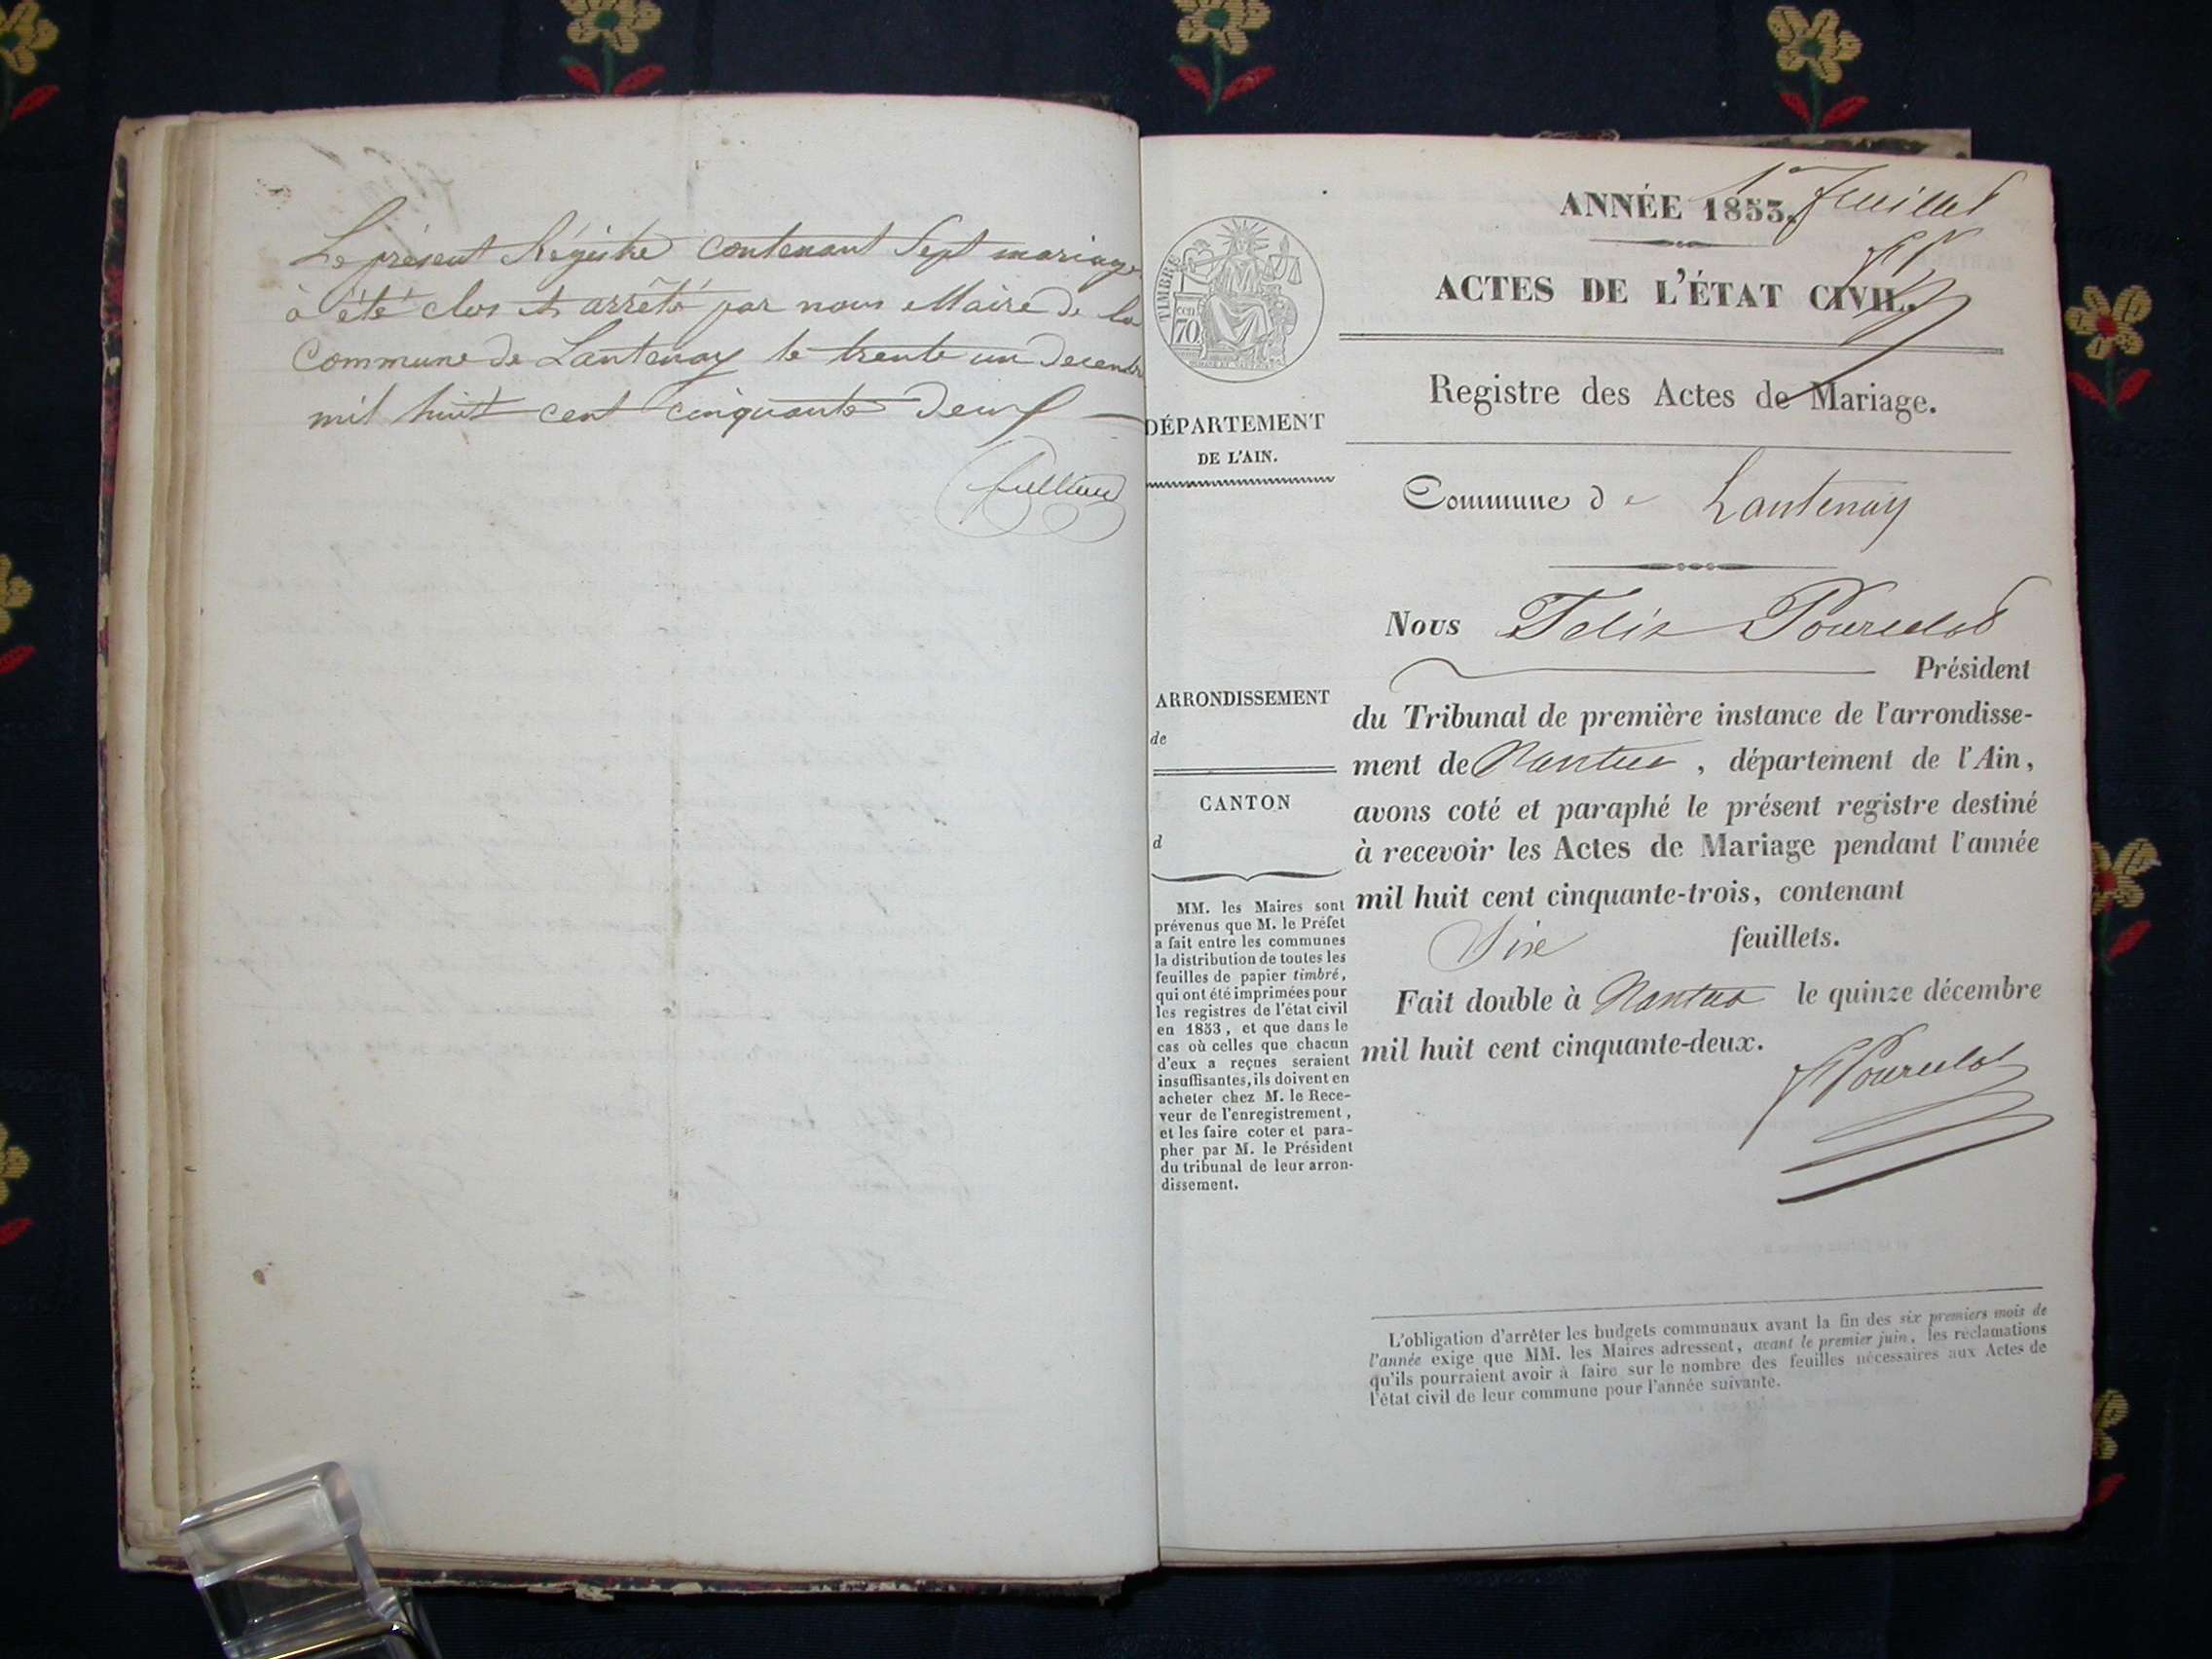 Le présent Régistre contenant Sept mariages
à été clos et arrêté par nous Maire de la
Commune de Lantenay le trente un Decembre
mil huit cent cinquante deux
1er feuillet
ANNÉE 1853.
ACTES DE L'ÉTAT CIVIL.
Registre des Actes de Mariage.
TIMBRE
cen
70
DÉPARTEMENT
DE L'AIN.
Commune de Lantenay
Nous Felix Pourcelot
Président
du Tribunal de première instance de l'arrondisse-
ment de Nantua, département de l'Ain,
avons coté et paraphé le présent registre destiné
à recevoir les Actes de Mariage pendant l'année
mil huit cent cinquante-trois, contenant
Six feuillets.
Fait double à Nantua le quinze décembre
mil huit cent cinquante-deux.
FPourcelot
ARRONDISSEMENT
de
CANTON
d
MM. les Maires sont
prévenus que M. le Préfet
a fait entre les communes
la distribution de toutes les
feuilles de papier timbré,
qui ont été imprimées pour
les registres de l'état civil
en 1853, et que dans le
cas où celles que chacun
d'eux a reçues seraient
insuffisantes, ils doivent en
acheter chez M. le Rece-
veur de l'enregistrement,
et les faire coter et para-
pher par M. le Président
du tribunal de leur arron-
dissement.
L'obligation d'arrêter les budgets communaux avant la fin des six premiers mois de
l'année exige que MM. les Maires adressent, avant le premier juin, les réclamations
qu'ils pourraient avoir à faire sur le nombre des feuilles nécessaires aux Actes de
l'état civil de leur commune pour l'année suivante.